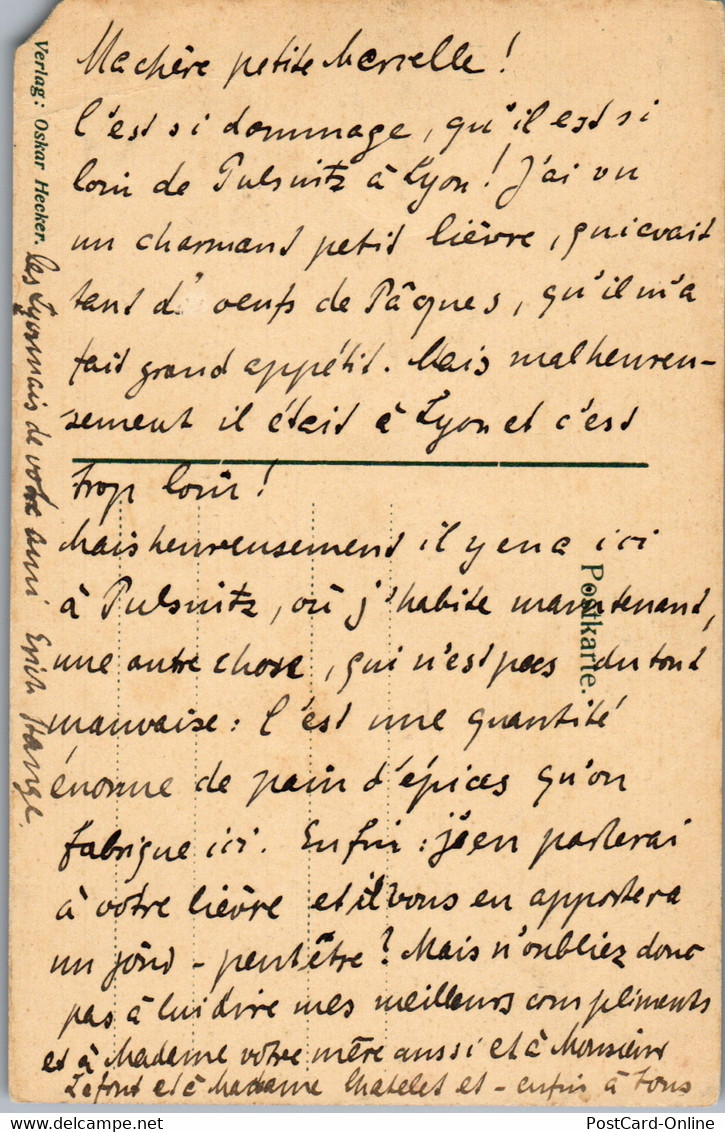 Ma chère petite Marcelle !
C'est si dommage, qu'il est si
loin de Pulsnitz à Lyon ! J'ai vu
un charmant petit lièvre, qui avait
tant d'oeufs de Pâques, qu'il m'a
fait grand appétit. Mais malheureu-
sement il était à Lyon et c'est
trop loin !
Mais heureusement il y en a ici
à Pulsnitz, où j'habite maintenant,
une autre chose, qui n'est pas du tout
mauvaise : C'est une quantité
énorme de pain d'épices qu'on
fabrique ici. Enfin : j'en parlerai
à votre lièvre et il vous en apportera
un jour - peut être ? Mais n'oubliez donc
pas à lui dire mes meilleurs compliments
et à Madame votre mère aussi et à Monsieur
Lafont et à Madame Chatelet et - enfin à tous
les Lyonnais de votre ami Erich Stange.
Verlag: Oskar Hecker.
Postkarte.
PostCard-Online
PostCard-Online.com